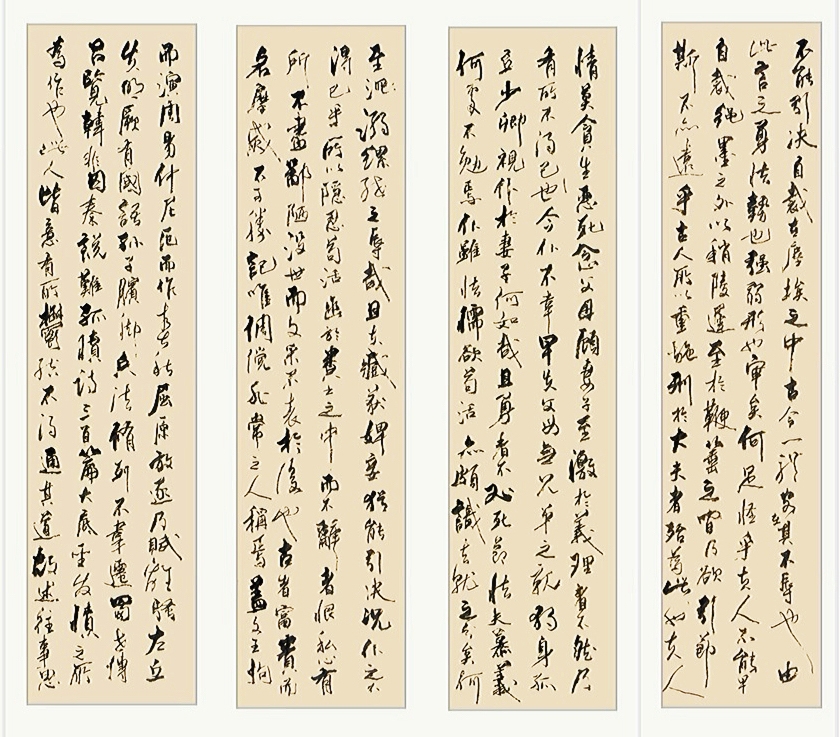 不能引决自裁在塵埃之中古今一體安在其不辱也由
此言之勇怯勢也强弱形也審矣何足怪乎夫人不能早
自裁繩墨之外以稍陵遲至於鞭箠之間乃欲引節
斯不亦遠乎古人所以重施刑於大夫者殆為此也夫人
情莫貪生惡死念父母顧妻子至激於義理者不然乃
有所不得已也今仆不幸早失父母無兄弟之親獨身孤
立少卿視仆於妻子何如哉且勇者不必死節怯夫慕義
何處不勉焉仆雖怯懦欲苟活亦頗識去就之分矣何
至沉溺縲紲之辱哉且夫臧獲婢妾猶能引决況仆之不
得已乎所以隱忍苟活幽於糞土之中而不辭者恨私心有
所不盡鄙陋没世而文采不表於後也古者富貴而
名摩滅不可勝記唯倜儻非常之人稱焉蓋文王拘
而演周易仲尼厄而作春秋屈原放逐乃賦離騷左丘
失明厥有國語孫子臏腳兵法脩列不韋遷蜀世傳
呂覽韓非囚秦說難孤憤詩三百篇大底聖發憤之所
為作也此人皆意有所鬱結不得通其道故述往事思